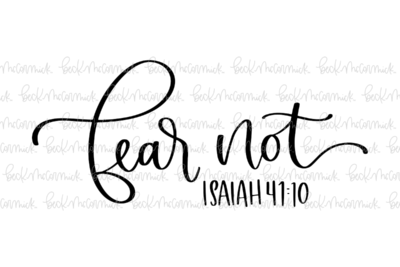 fear not
ISAIAH 41:10